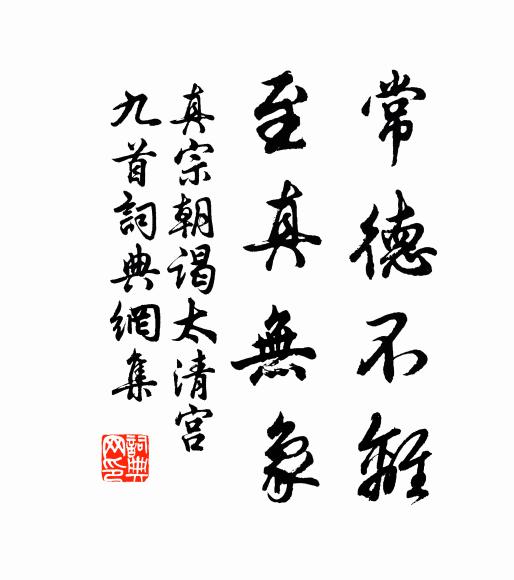 常德不離
至真無象
真宗朝谒太清宫
九首詞典網集
詞典
网印